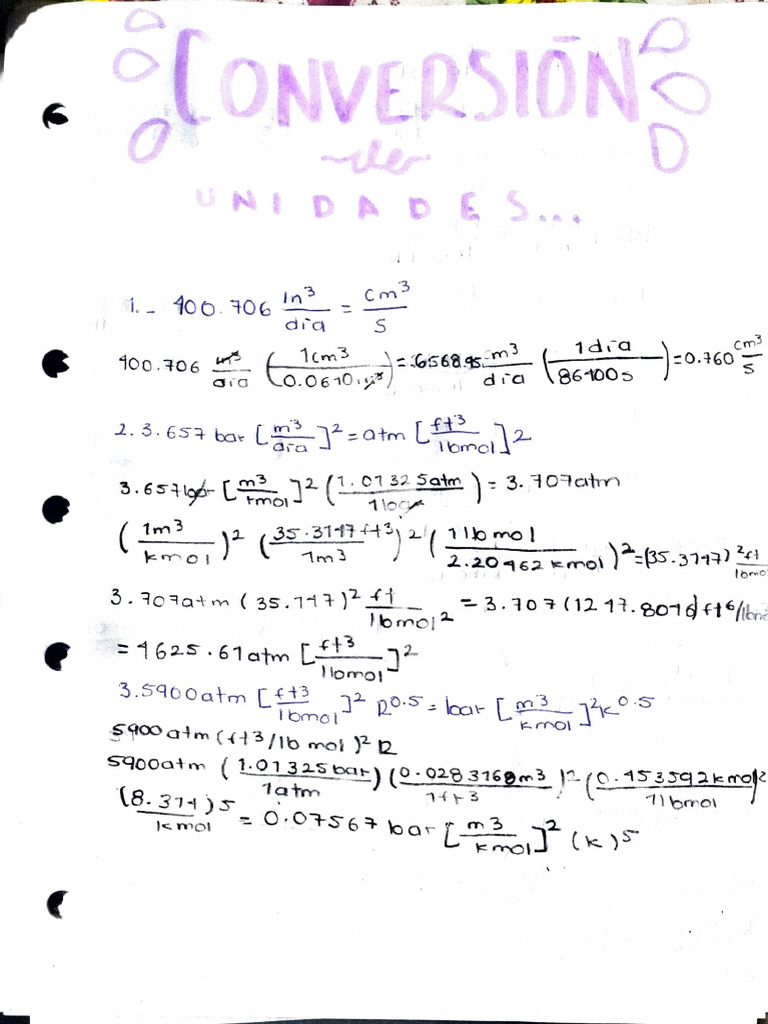 CONVERSIÓN
de
UNIDADES...
1.- 400.706 in³/día = cm³/s
400.706 in³/día (1cm³/0.0610 in³) = 6568.95 cm³/día (1 día/86400s) = 0.760 cm³/s
2. 3.657 bar [m³/día]² = atm [ft³/lbmol]2
3.657 bar [m³/kmol]² (1.01325atm/1bar) = 3.707atm
(1m³/kmol)² (35.3147ft³/1m³)² (1 lbmol/2.20462 kmol)² = (35.3147)² ft/lbmol
3.707atm (35.147)² ft/lbmol² = 3.707 (1247.8046) ft⁶/
= 4625.61 atm [ft³/lbmol]²
3. 5900atm [ft³/lbmol]² R⁰·⁵ = bar [m³/kmol]² K⁰·⁵
5900 atm (ft³/lb mol)² R
5900atm (1.01325bar/1atm) (0.0283168m³/1ft³)² (0.453592kmol/1lbmol)²
(8.314/kmol)5 = 0.07567 bar [m³/kmol]² (K)⁵